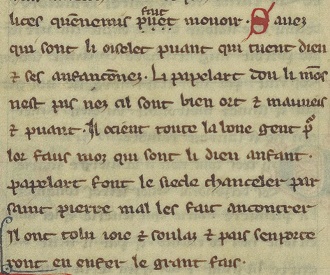 lices quenemus puet mouoir. Sauez
qui sont li oiselet puant qui tuent dieu
⁊ ses anfanconez. Li papelart dou li mons
nest pas nez cil sont bien ort ⁊ mauueis
⁊ puant. Il ocient toute la bone gent
lor faus moz qui sont li dieu anfant.
papelart font le siecle chanceler par
saint pierre mal les fait ancontrer
Il ont tolu ioie ⁊ soulaz ⁊ pais senporte
ront en enfer le grant fais.